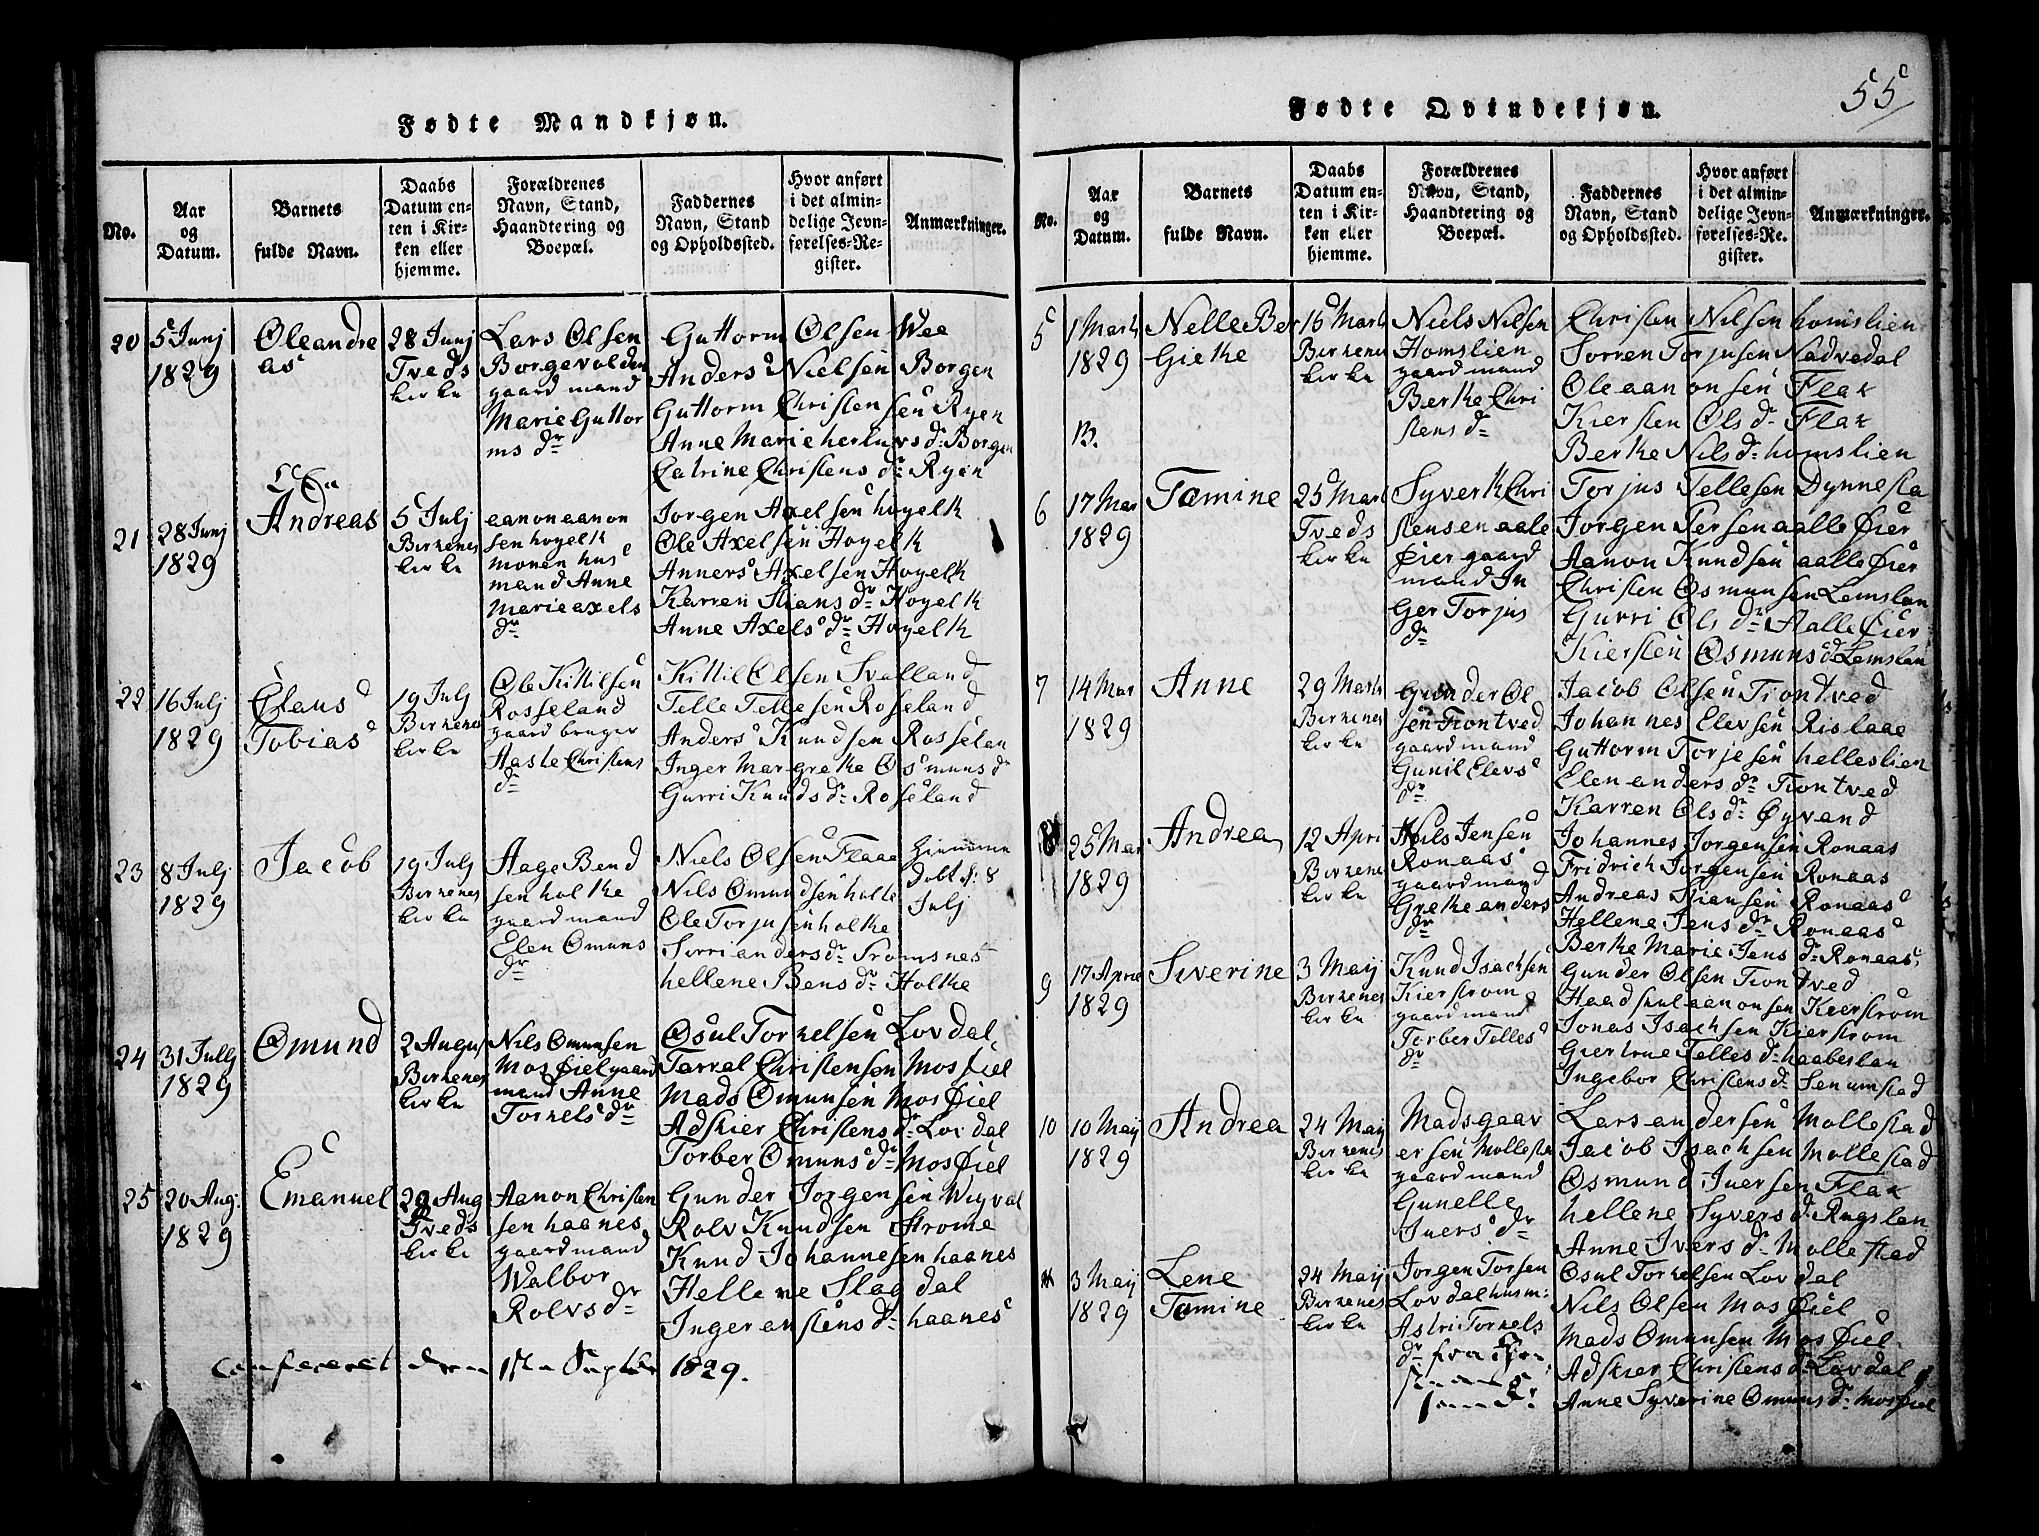 Fødte Mandkjøn.
No.
Aar og Datum.
Barnets fulde Navn.
Daabs Datum enten i Kirken eller hjemme.
Forældrenes Navn, Stand, Haandtering og Boepæl.
Faddernes Navn, Stand og Opholdssted.
Hvor anført i det almindelige Jevnførelses-Register.
Anmærkninger.
20
5 Junj
1829
Oleandre
as
28 Junj
Tveds
kirke
Lars Olsen
Borgevolden
gaard mand
Marie Guttor
ms dr
Guttorm Olsen Wee
Anders Nielsen Borgen
Guttorm Christensen Ryen
Anne Marie herlufs dr Borgen
Catrine Christens dr Ryen
21
28 Junj
1829
Andreas
5 Julj
Birkenes
kirke
aanon aanon
sen hogelk
monen hus
mand Anne
Marie axels
dr
Jorgen Axelsen hogelk
Ole Axelsen Hogelk
Anners Axelsen Hogelk
Karren Stians dr Hogelk
Anne Axels dr Hogelk
22
16 Julj
1829
Olaus
Tobias
19 Julj
Birkenes
kirke
Ole Kittilsen
Rosseland
gaard bruger
Aaste Christens
dr
Kittil Olsen Svalland
Telle Tellesen Roseland
Anders Knudsen Rosselan
Inger Margrethe Osmuns dr
Gurri Knuds dr Roseland
23
8 Julj
1829
Jacob
19 Julj
Birkenes
kirke
Aage Bend
sen holtke
gaard mand
Elen Omuns
dr
Niels Olsen Flaae
Nils Omundsen holte
Ole Torjusen holke
Sirri anders dr Tromsnes
hellene Bens dr Holke
Hiemme
Dobt d: 8
Julj
24
31 Julj
1829
Omund
2 Augus
Birkenes
kirke
Nils Omunsen
Mosfiel gaard
mand Anne
Torkels dr
Osul Torkelsen Lovdal
Tarral Christensen Mosfiel
Mads Omunsen Mosfiel
Adskier Christens dr Lovdal
Torber Omuns dr Mosfiel
25
20 Aug:
1829
Emanuel
29 Aug
Tveds
kirke
Aanon Christen
sen haanes
gaard mand
Walbor
Rolvs dr
Gunder Jorgensen Wigval
Rolv Knudsen Strome
Knud Johannesen haanes
Hellene Slagdal
Inger anstens dr haanes
1829.
Fødte Qvindekjøn.
55
No.
Aar og Datum.
Barnets fulde Navn.
Daabs Datum enten i Kirken eller hjemme.
Forældrenes Navn, Stand, Haandtering og Boepæl.
Faddernes Navn, Stand og Opholdssted.
Hvor anført i det almindelige Jevnførelses-Register.
Anmærkninger.
5
1 Marts
1829
B.
Nelle Ber
Giethe
15 Marts
Birkenes
kirke
Niels Nilsen
Homslien
gaard mand
Berthe Chri
stens dr
Christen Nilsen homslien
Sorren Torjusen Nadvedal
Ole aanonsen Flak
Kiersten Ols dr Flak
Berthe Nils dr homslien
6
17 Mar
1829
Tomine
25 Marts
Tveds
kirke
Syvert Chri
stensen aale
Øier gaard
mand In
Ger Torjus
dr
Torjus Tellesen Dynnesta
Jorgen Tersen aalleØier
Aanon Knudsen aalleØier
Christen Osmunsen Lemslan
Gurri Ols dr AalleØier
Kiersten Osmuns dr Lemslan
7
14 Mar
1829
Anne
29 Marts
Birkenes
kirke
Gunder Ol
sen Tiontved
gaard mand
Gunil Elevs
dr
Jacob Olsen Tiontved
Johannes Elevsen Rislaae
Guttorm Torjesen helleslien
Elen anders dr Tiontved
Karren Ols dr Øyvand
8
25 Mar
1829
Andrea
12 Apri
Birkenes
kirke
Nils Jensen
Ronaas
gaard mand
Grethe anders
dr
Johannes Jorgensen Ronaas
Fridrich Jorgensen Ronaas
Andreas Stiansen Ronaas
Hellene Jens dr Ronaas
Berthe Marie Jens dr Ronaas
9
17 Apriel
1829
Siverine
3 May
Birkenes
kirke
Knud Isachsen
Kierstrom
gaard mand
Torber Telles
dr
Gunder Olsen Tiontved
Haadskul aanonsen Kierstrom
Jonas Isachsen Kierstrom
Giertrue Telles dr haabeslan
Ingebor Christens dr Senumstad
10
10 May
1829
Andrea
24 May
Birkenes
kirke
Mads gaav
ersen Mollesta
gaard mand
Gunelle
Iuers dr
Lars andersen Mollestad
Jacob Isachsen Mollestad
Osmund Juersen Flak
hellene Syvers dr Rugslan
Anne Ivers dr Mollestad
3 May
1829
Lene
Tomine
24 May
Birkenes
kirke
Jorgen Torsen
Lovdal husm:
Astri Torkels
dr fra
Osul Torkelsen Lovdal
Nils Olsen Mosfiel
Mads Omunsen Mosfiel
Adskier Christens dr Lovdal
Anne Syverine Omuns dr Mosfiel